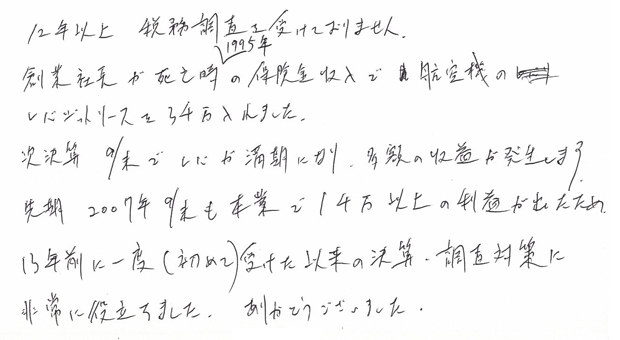 12年以上 税務調査を受けておりません。
1995年
創業社長が死亡時の保険金収入で 航空機の
レバレッジドリースを3千万入れました。
次決算 9/末でレバが満期になり、多額の収益が発生します
先期 2007年9/末も本業で1千万以上の利益が出たため
13年前に一度(初めて)受けた以来の決算・調査対策に
非常に役立ちました。ありがとうございました。